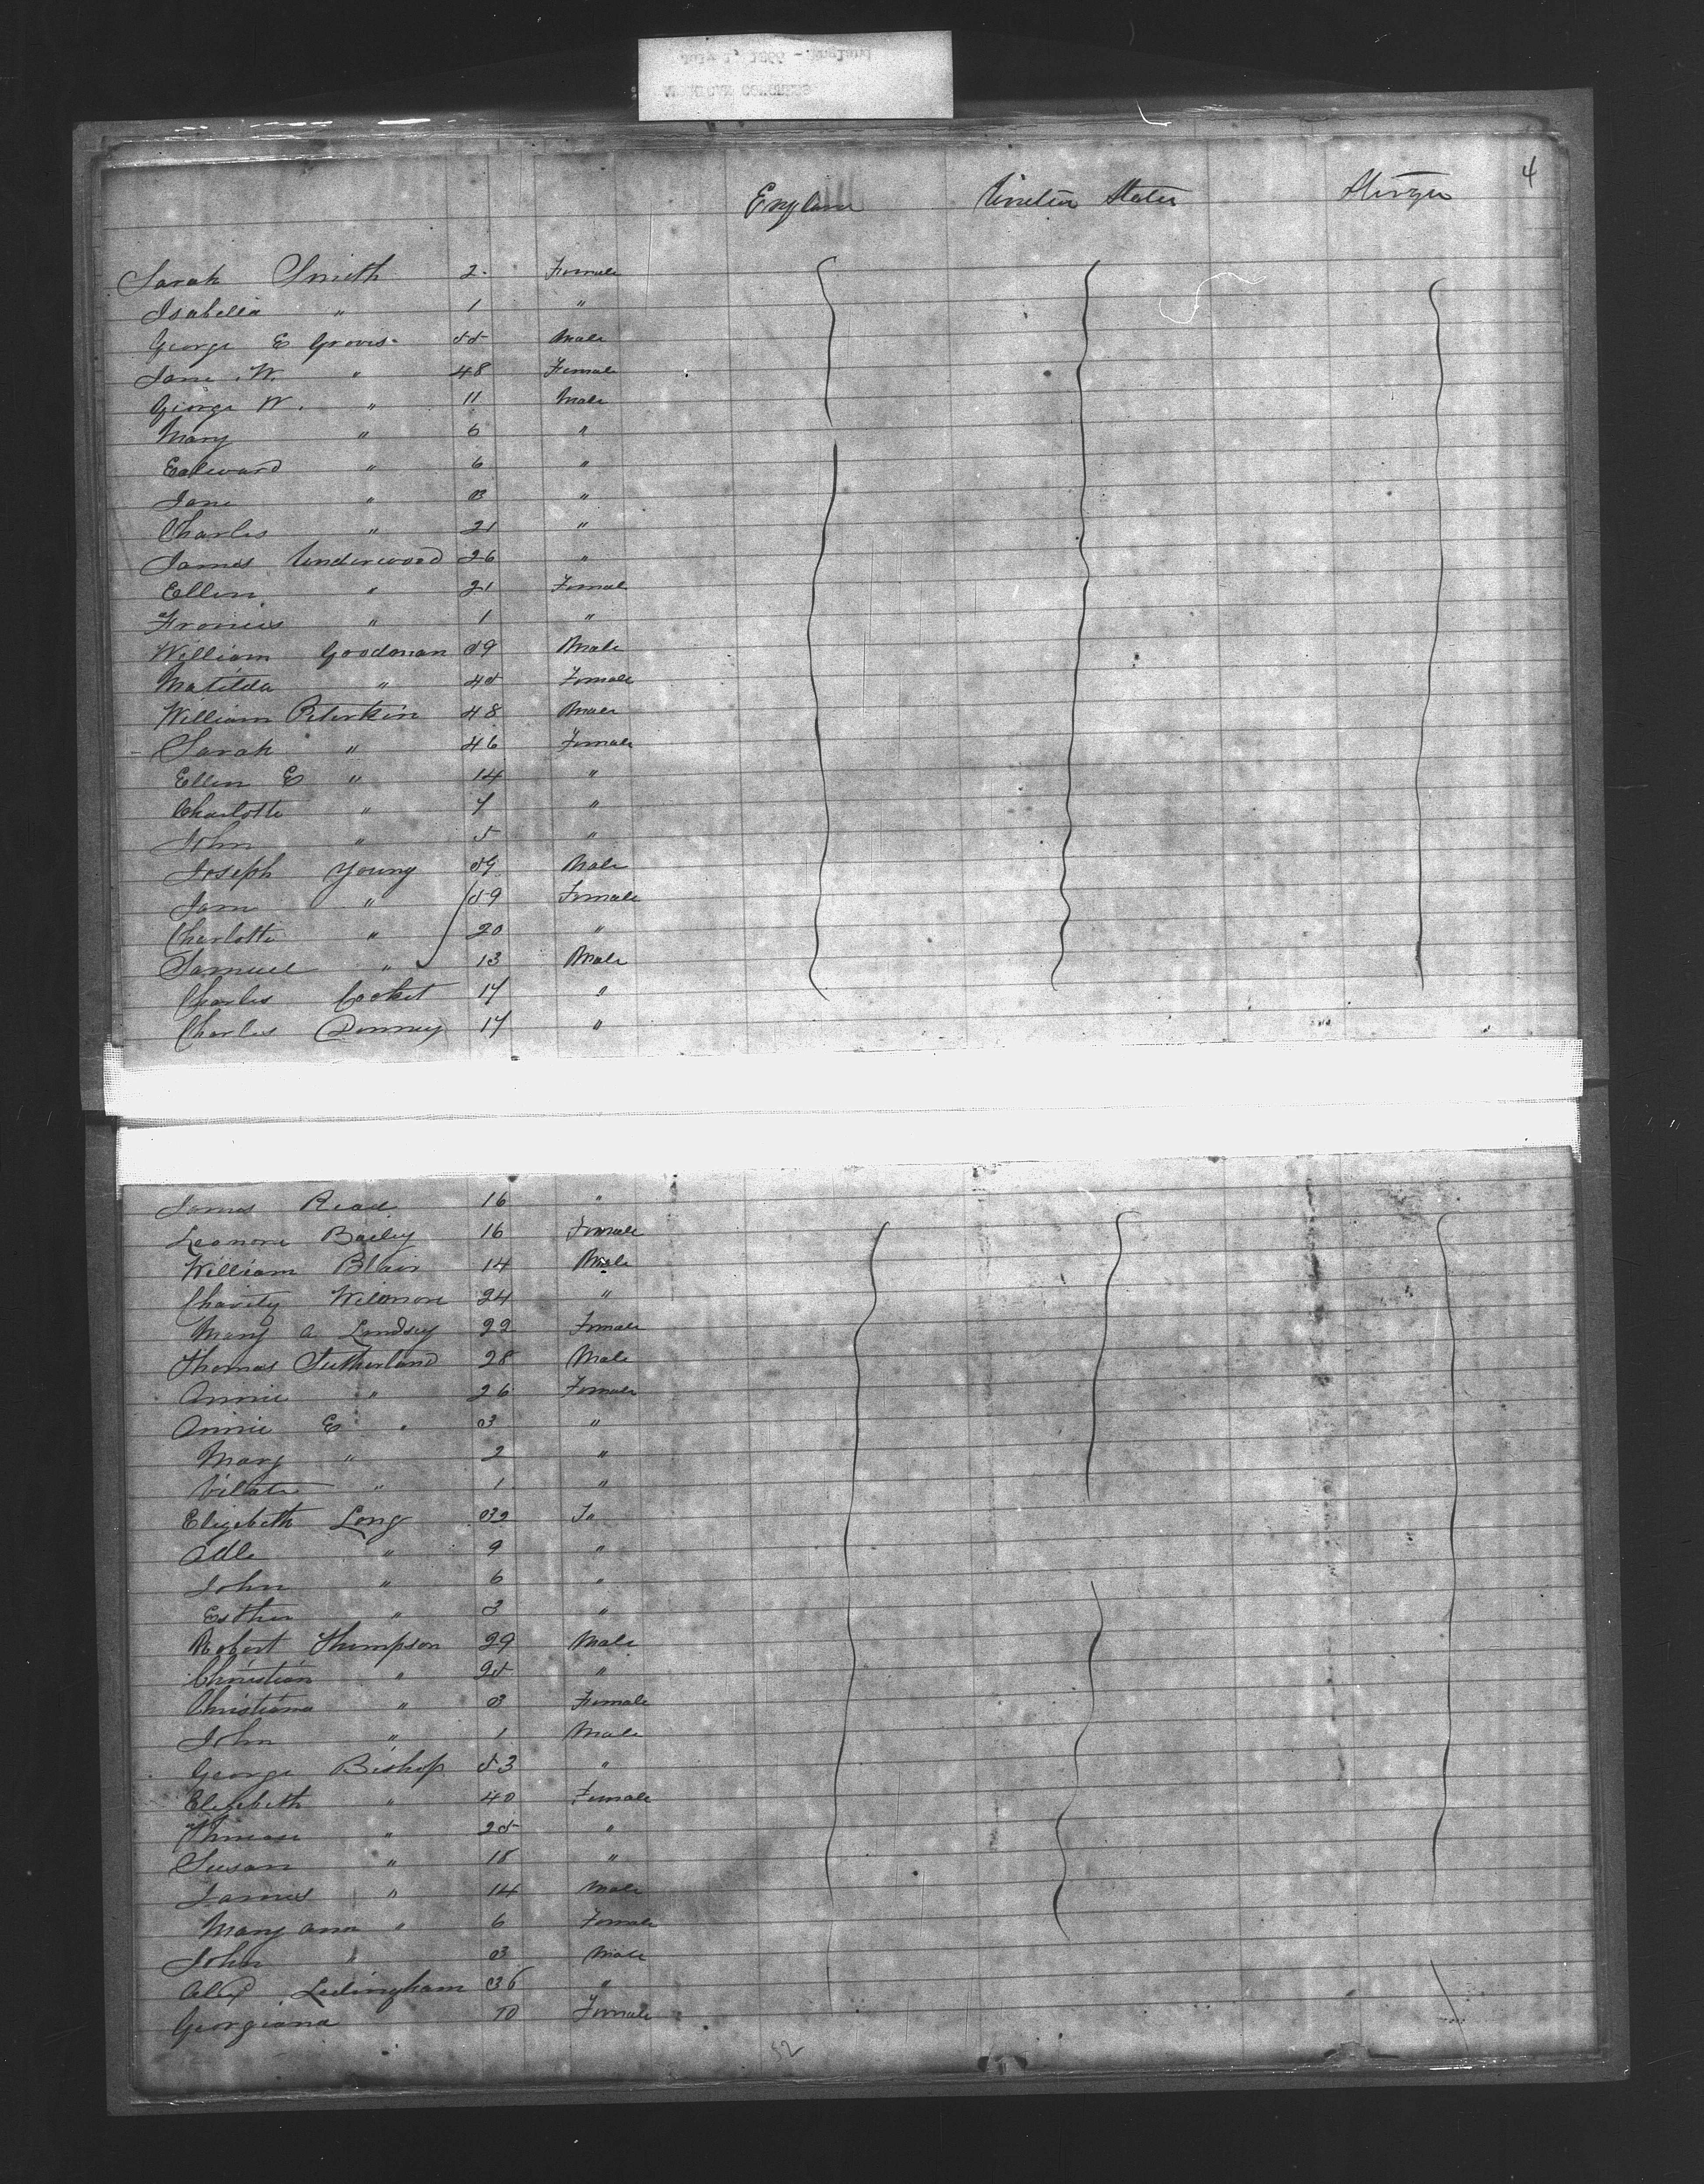 4
England United States Steerage
Sarah Smith 2 Female
Isabella " 1 "
George E Groves 55 Male
Jane W. " 48 Female
George W. " 11 Male
Mary " 6 "
Edward " 6 "
Jane " 3 "
Charles " 21 "
James Underwood 26 "
Ellen " 21 Female
Francis " 1 "
William Goodman 59 Male
Matilda " 45 Female
William Peterkin 48 Male
Sarah " 46 Female
Ellen E " 14 "
Charlotte " 7 "
John " 5 "
Joseph Young 59 Male
Jane " 59 Female
Charlotte " 20 "
Samuel " 13 Male
Charles 17 "
Charles 17 "
James Read 16 "
Leonora Bailey 16 Female
William Blair 14 Male
Charity 24 "
Mary A Lindsey 22 Female
Thomas Sutherland 28 Male
Annie " 26 Female
Annie E " 3 "
Mary " 2 "
Vilate " 1 "
Elizabeth Long 32 Fe
" 9 "
John " 6 "
Esther " 3 "
Robert Thompson 29 Male
Christian " 25 "
Christiana " 3 Female
John " 1 Male
George Bishop 53 "
Elizabeth " 40 Female
" 25 "
Susan " 18 "
James " 14 Male
Mary Ann " 6 Female
John " 3 Male
Alex Ledingham 36 "
Georgiana 10 Female
52